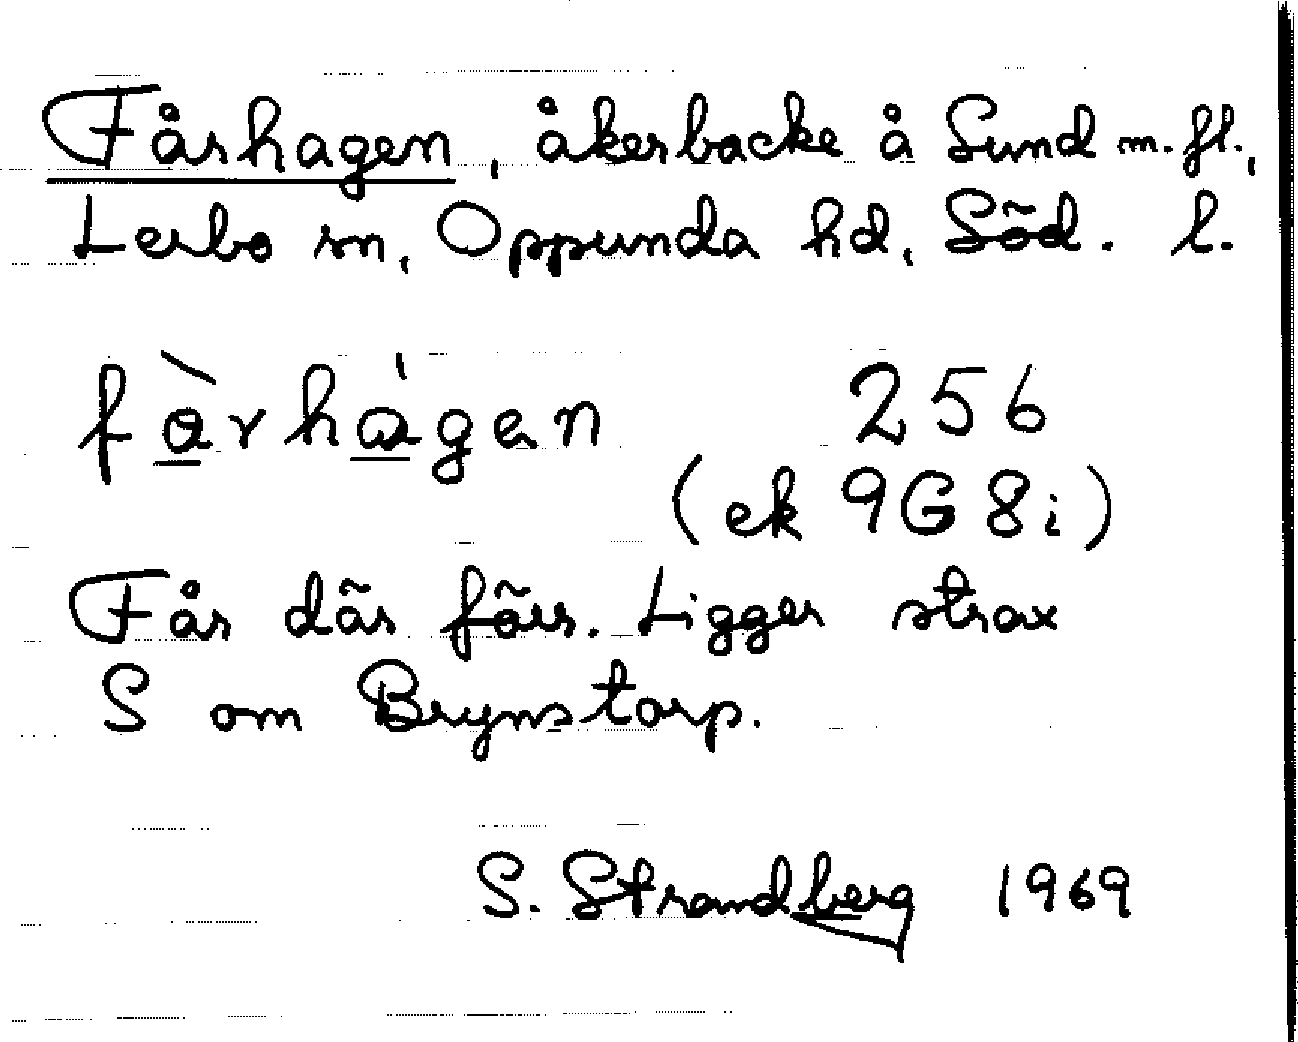 Fårhagen, åkerbacke å Sund m. fl.,
Lerbo sn, Oppunda hd, Söd. l.
fàrhágen 256
(ek 9G8i)
Får där förr. Ligger strax
S om Brynstorp.
S. Strandberg 1969